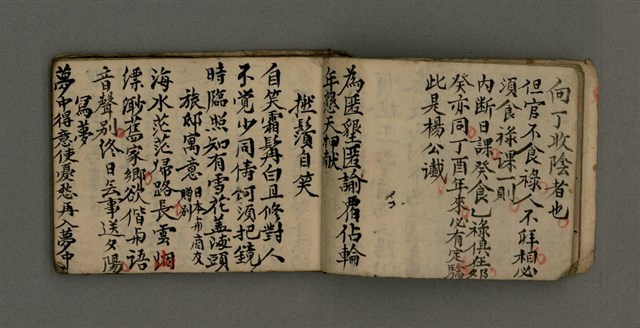 向丁收陰者也
但官不食祿人不拜相必
須食祿課一則
内斷日課癸食乙祿俱在卯
癸亦同丁酉年來必有定驗
此是楊公讖
為匿墾匿諭覆佔輪
年懇天
撚鬚自笑
自笑霜髯白且修對人
不覺少同儔何須把鏡
時臨照知有雪花蓋海頭
旅邸寓意 日本布商友贈別
海水茫茫歸路長雲烟
縹緲舊家鄉欲偕與語
音聲別終日無事送夕陽
寫夢
夢中得意使憂愁再入夢中